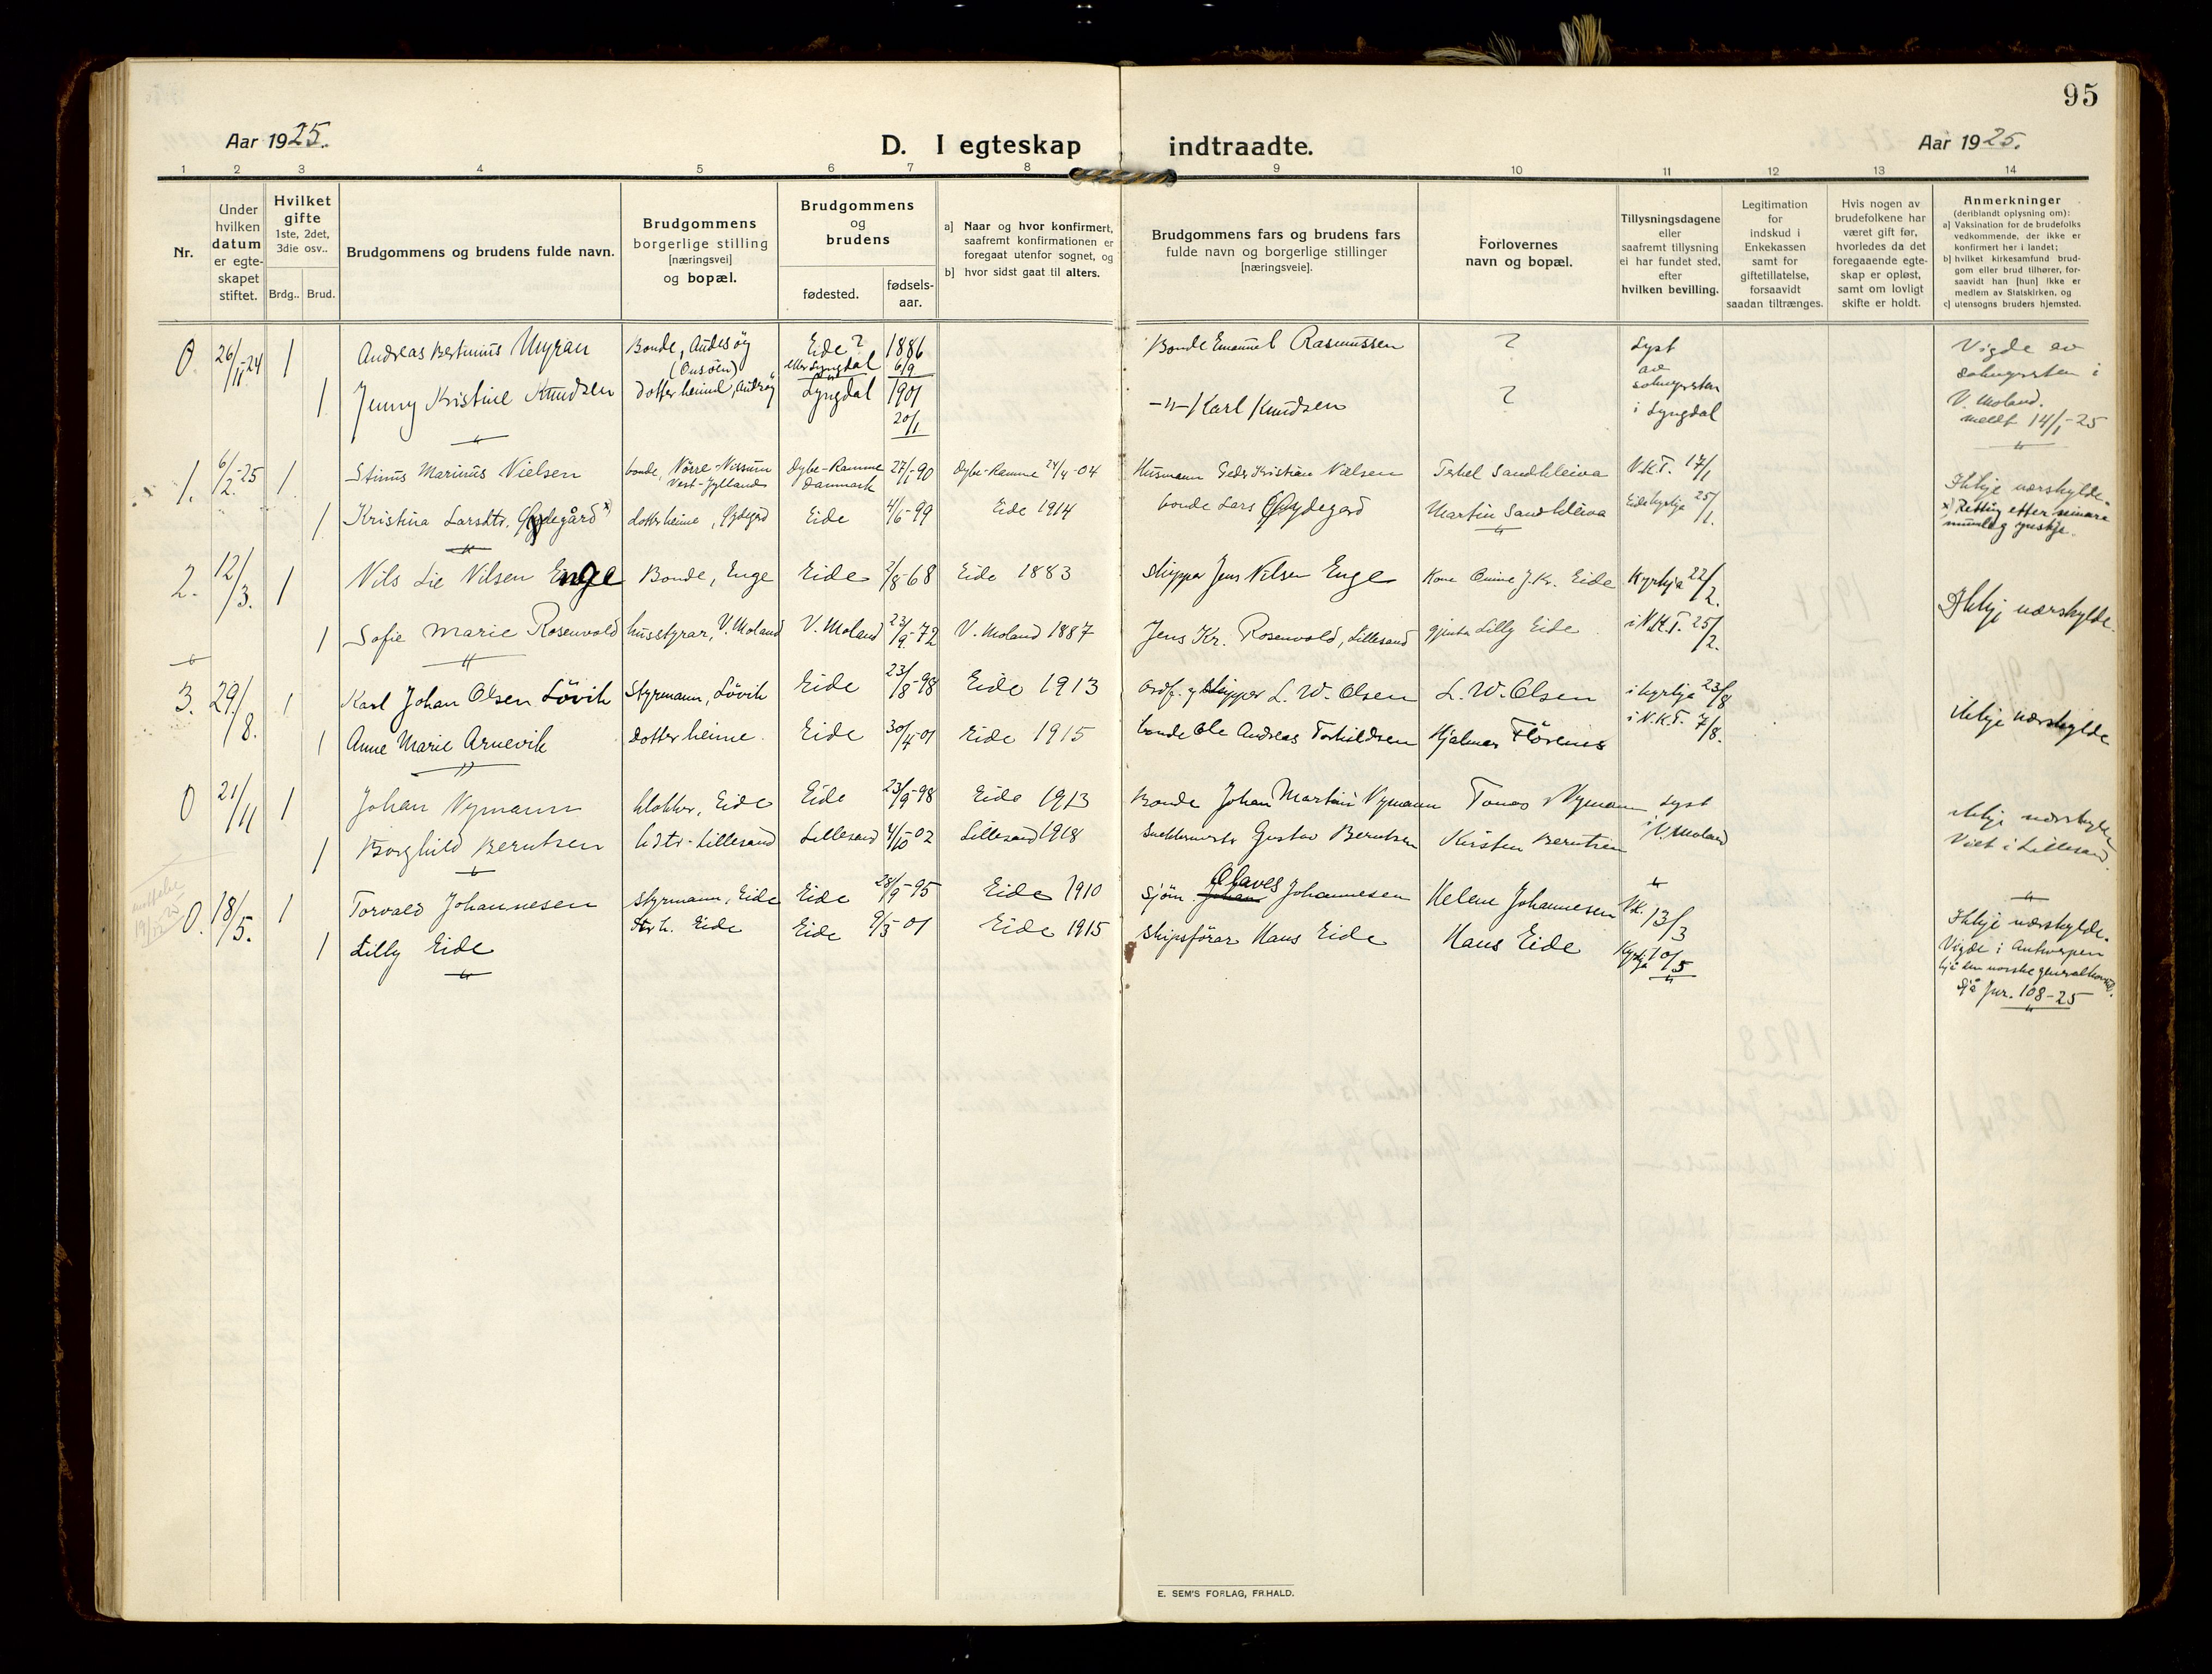 95
Aar 1925.
D. I egteskap indtraadte.
Aar 1925.
1 2 3 4 5 6 7 8 9 10 11 12 13 14
Nr.
Under hvilken datum er egteskapet stiftet.
Hvilket gifte 1ste, 2det, 3die osv..
Brdg.. Brud.
Brudgommens og brudens fulde navn.
Brudgommens borgerlige stilling [næringsvei] og bopæl.
Brudgommens og brudens
fødested.
fødselsaar.
a) Naar og hvor konfirmert, saafremt konfirmationen er foregaat utenfor sognet, og
b) hvor sidst gaat til alters.
Brudgommens fars og brudens fars fulde navn og borgerlige stillinger [næringsveie].
Forlovernes navn og bopæl.
Tillysningsdagene eller saafremt tillysning ei har fundet sted, efter hvilken bevilling.
Legitimation for indskud i Enkekassen samt for giftetillatelse, forsaavidt saadan tiltrænges.
Hvis nogen av brudefolkene har været gift før, hvorledes da det foregaaende egteskap er opløst, samt om lovligt skifte er holdt.
Anmerkninger
(deriblandt oplysning om):
a) Vaksination for de brudefolks vedkommende, der ikke er konfirmert her i landet;
b) hvilket kirkesamfund brudgom eller brud tilhører, forsaavidt han [hun] ikke er medlem av Statskirken, og
c) utensogns bruders hjemsted.
0. 26/11-24 1 Andreas Bertinius Myran Bonde, Andesøy (Ousöen) Eide? eller Lyngdal 1886 6/9 Bonde Emanuel Rasmussen ? Lyst av soknepresten i Lyngdal Vigde av soknepresten i V. Moland. meldt 14/1-25
1 Jenny Kristine Knudsen dotter heime, Lyngdal 1901 20/1 -"- Karl Knudsen ?
1. 6/2-25 1 Stinus Marinus Nielsen bonde, Nörre-Nissum Vest-Jylland Dybe-Ramme Danmark 27/1-90 Dybe-Ramme 24/4-04 Husmann Peder Kristian Nielsen Terkel Sandkleiva V.K.T. 17/1 Ikkje nærskylde.
1 Kristina Larsdtr. dotter heime, Eide 4/6-99 Eide 1914 bonde Lars Martin Sandkleiva Eidekyrkja 25/1. x) Retting etter
2. 12/3. 1 Nils Lie Nilsen Enge Bonde, Enge Eide 2/8-68 Eide 1883 Skipper Jens Nilsen Enge Kona J. Kr. Eide Kyrkja 22/2. Ikkje nærskylde.
1 Sofie Marie Rosenvold husstyrar, V. Moland V. Moland 23/9-72 V. Moland 1887 Jens Kr. Rosenvold, Lillesand gjenta Lilly Eide i N.K.T. 25/2.
3. 29/8. 1 Karl Johan Olsen Lövik Styrmann, Lövik Eide 23/8-98 Eide 1913 Ordf. og Skipper L. W. Olsen L. W. Olsen i kyrkja 23/8 ikkje nærskylde
1 Anne Marie Arnevik dotter heime. Eide 30/4-01 Eide 1915 bonde Ole Andreas Torkildsen Hjalmar Flörenes i N.K.T. 7/8.
0 21/11 1 Johan Nymann klokker, Eide Eide 23/9-98 Eide 1913 Bonde Johan Martin Nymann Tomas Nymann Lyst i V. Moland ikkje nærskylde
1 Borghild Berntsen Lillesand Lillesand 4/10-02 Lillesand 1918 Gustav Berntsen Kirsten Berntsen Viet i Lillesand
0. 18/5. 1 Torvald Johannesen Styrmann, Eide Eide 28/9-95 Eide 1910 Sjöm. Johan Olaves Johannesen Helene Johannesen 13/3 Ikkje nærskylde.
1 Lilly Eide h. Eide Eide 9/3-01 Eide 1915 Skipsförar Hans Eide Hans Eide Kyrkja 10/5 Vigde i Antwerpen
hjå den norske generalkonsul.
Sjå Jnr. 108-25
E. SEM'S FORLAG, FR.HALD.